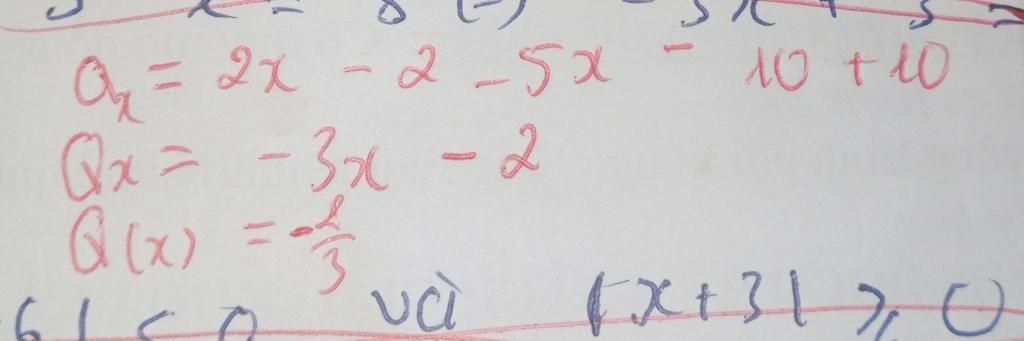 Qx = 2x - 2 - 5x - 10 + 10
Qx = - 3x - 2
Q(x) = -2/3
và |x+3| ⩾ 0